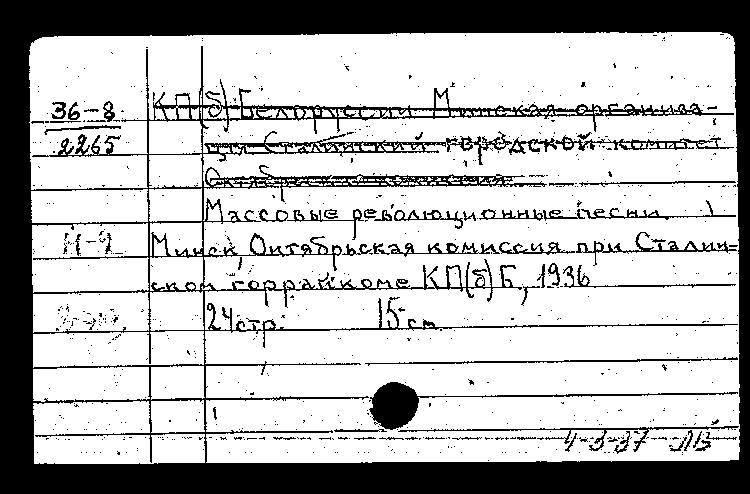 36-8
2265
КП(б) Белоруссии Минская организа-
ция Сталинский городской комитет
Октябрьская комиссия
Массовые революционные песни.
Минск, Октябрьская комиссия при Сталин=
ском горрайкоме КП(б)Б, 1936
24 стр. 15 см
4-3-37